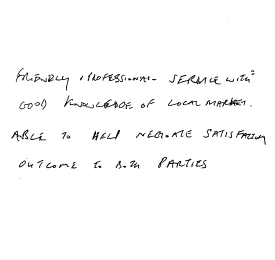 FRIENDLY & PROFESSIONAL SERVICE WITH
GOOD KNOWLEDGE OF LOCAL MARKET.
ABLE TO HELP NEGOTIATE SATISFACTORY
OUTCOME TO BOTH PARTIES